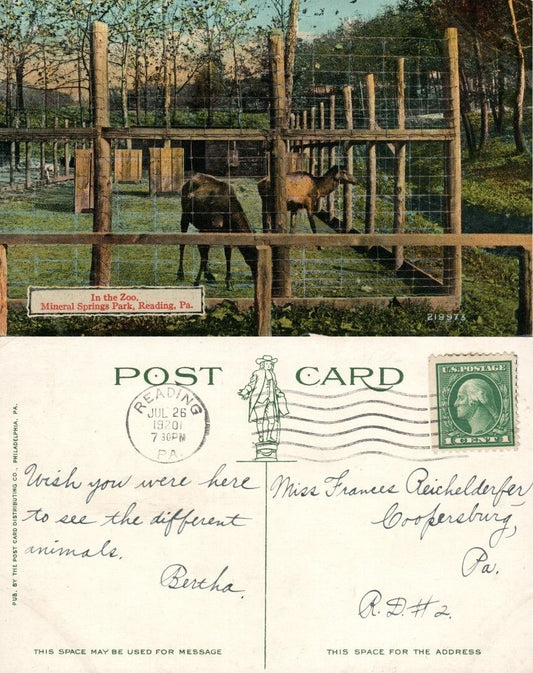 In the Zoo,
Mineral Springs Park, Reading, Pa.
219973
POST CARD
READING
JUL 26
1920
7 30 PM
PA.
U.S. POSTAGE
1 CENT 1
PUB. BY THE POST CARD DISTRIBUTING CO., PHILADELPHIA, PA.
Wish you were here
to see the different
animals.
Bertha.
Miss Frances Reichelderfer
Coopersburg,
Pa.
R.D.#2.
THIS SPACE MAY BE USED FOR MESSAGE
THIS SPACE FOR THE ADDRESS